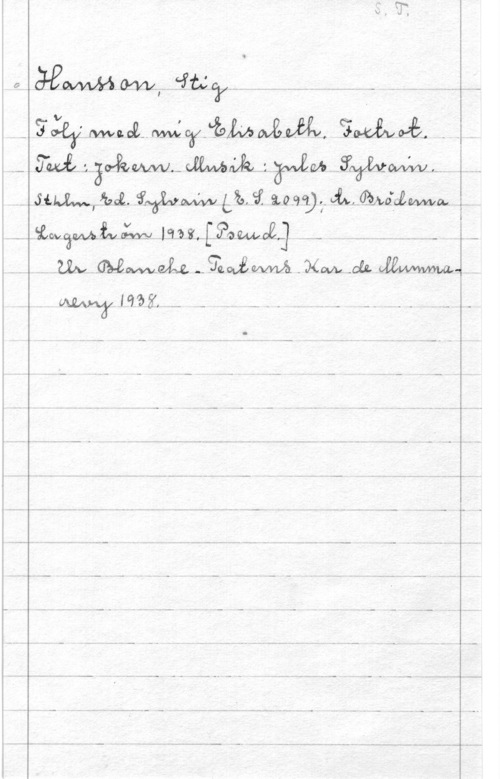 S. T.
Hansson, Stig
Följ med mig Elisabeth. Foxtrot.
Text: Jokern. Musik: Jules Sylvain.
Sthlm, Ed. Sylvain (E. S. 2099); tr. Bröderna
Lagerström 1938. [Pseud.]
Ur Blanche-Teaterns Kar de Mumma-
revy 1938.